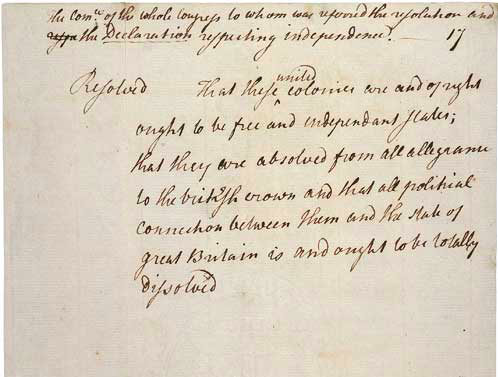 The Com.^ee of the whole Congress to whom was referred the resolution and
respe the Declaration respecting independence. — 17
Resolved That these united colonies are and of right
ought to be free and independant states;
that they are absolved from all allegiance
to the british crown and that all political
connection between them and the state of
great Britain is and ought to be totally
dissolved